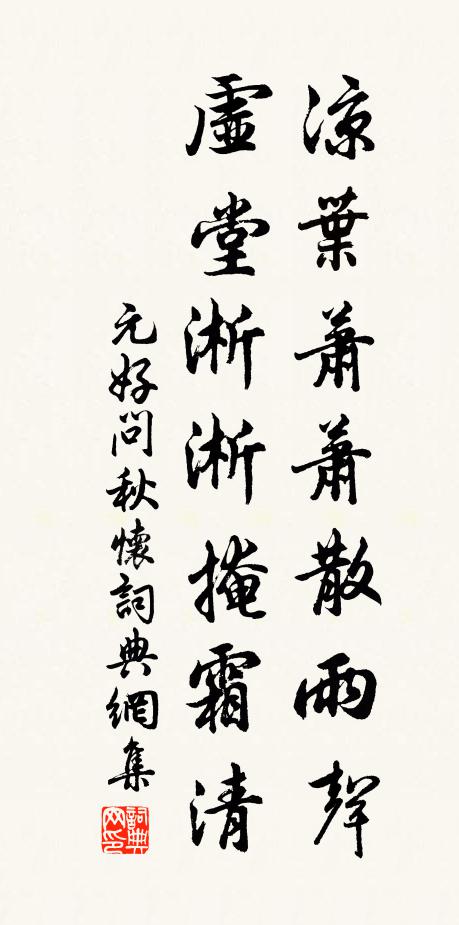 涼葉蕭蕭散雨聲
虛堂淅淅掩霜清
元好問秋懷詞典網集
詞典网印